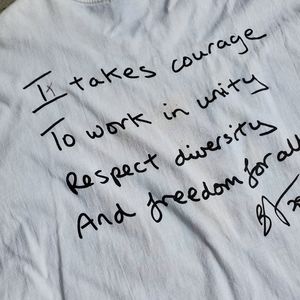 It takes courage
To work in unity
Respect diversity
And freedom for all